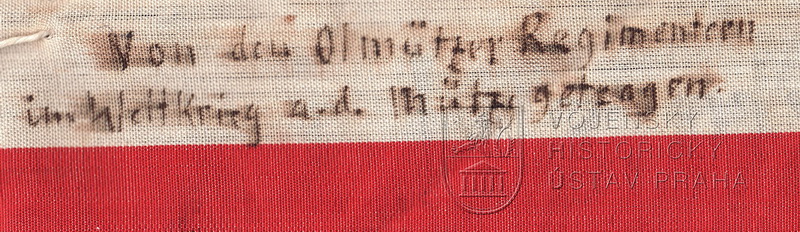 Von den Olmützer Regimentern
im Weltkrieg a.d. Mütze getragen.
VOJENSKÝ
HISTORICKÝ
ÚSTAV PRAHA